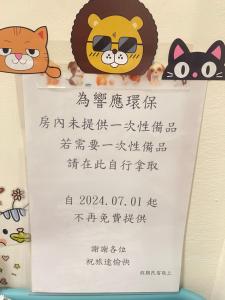 為響應環保
房內未提供一次性備品
若需要一次性備品
請在此自行拿取
自 2024.07.01 起
不再免費提供
謝謝各位
祝旅途愉快